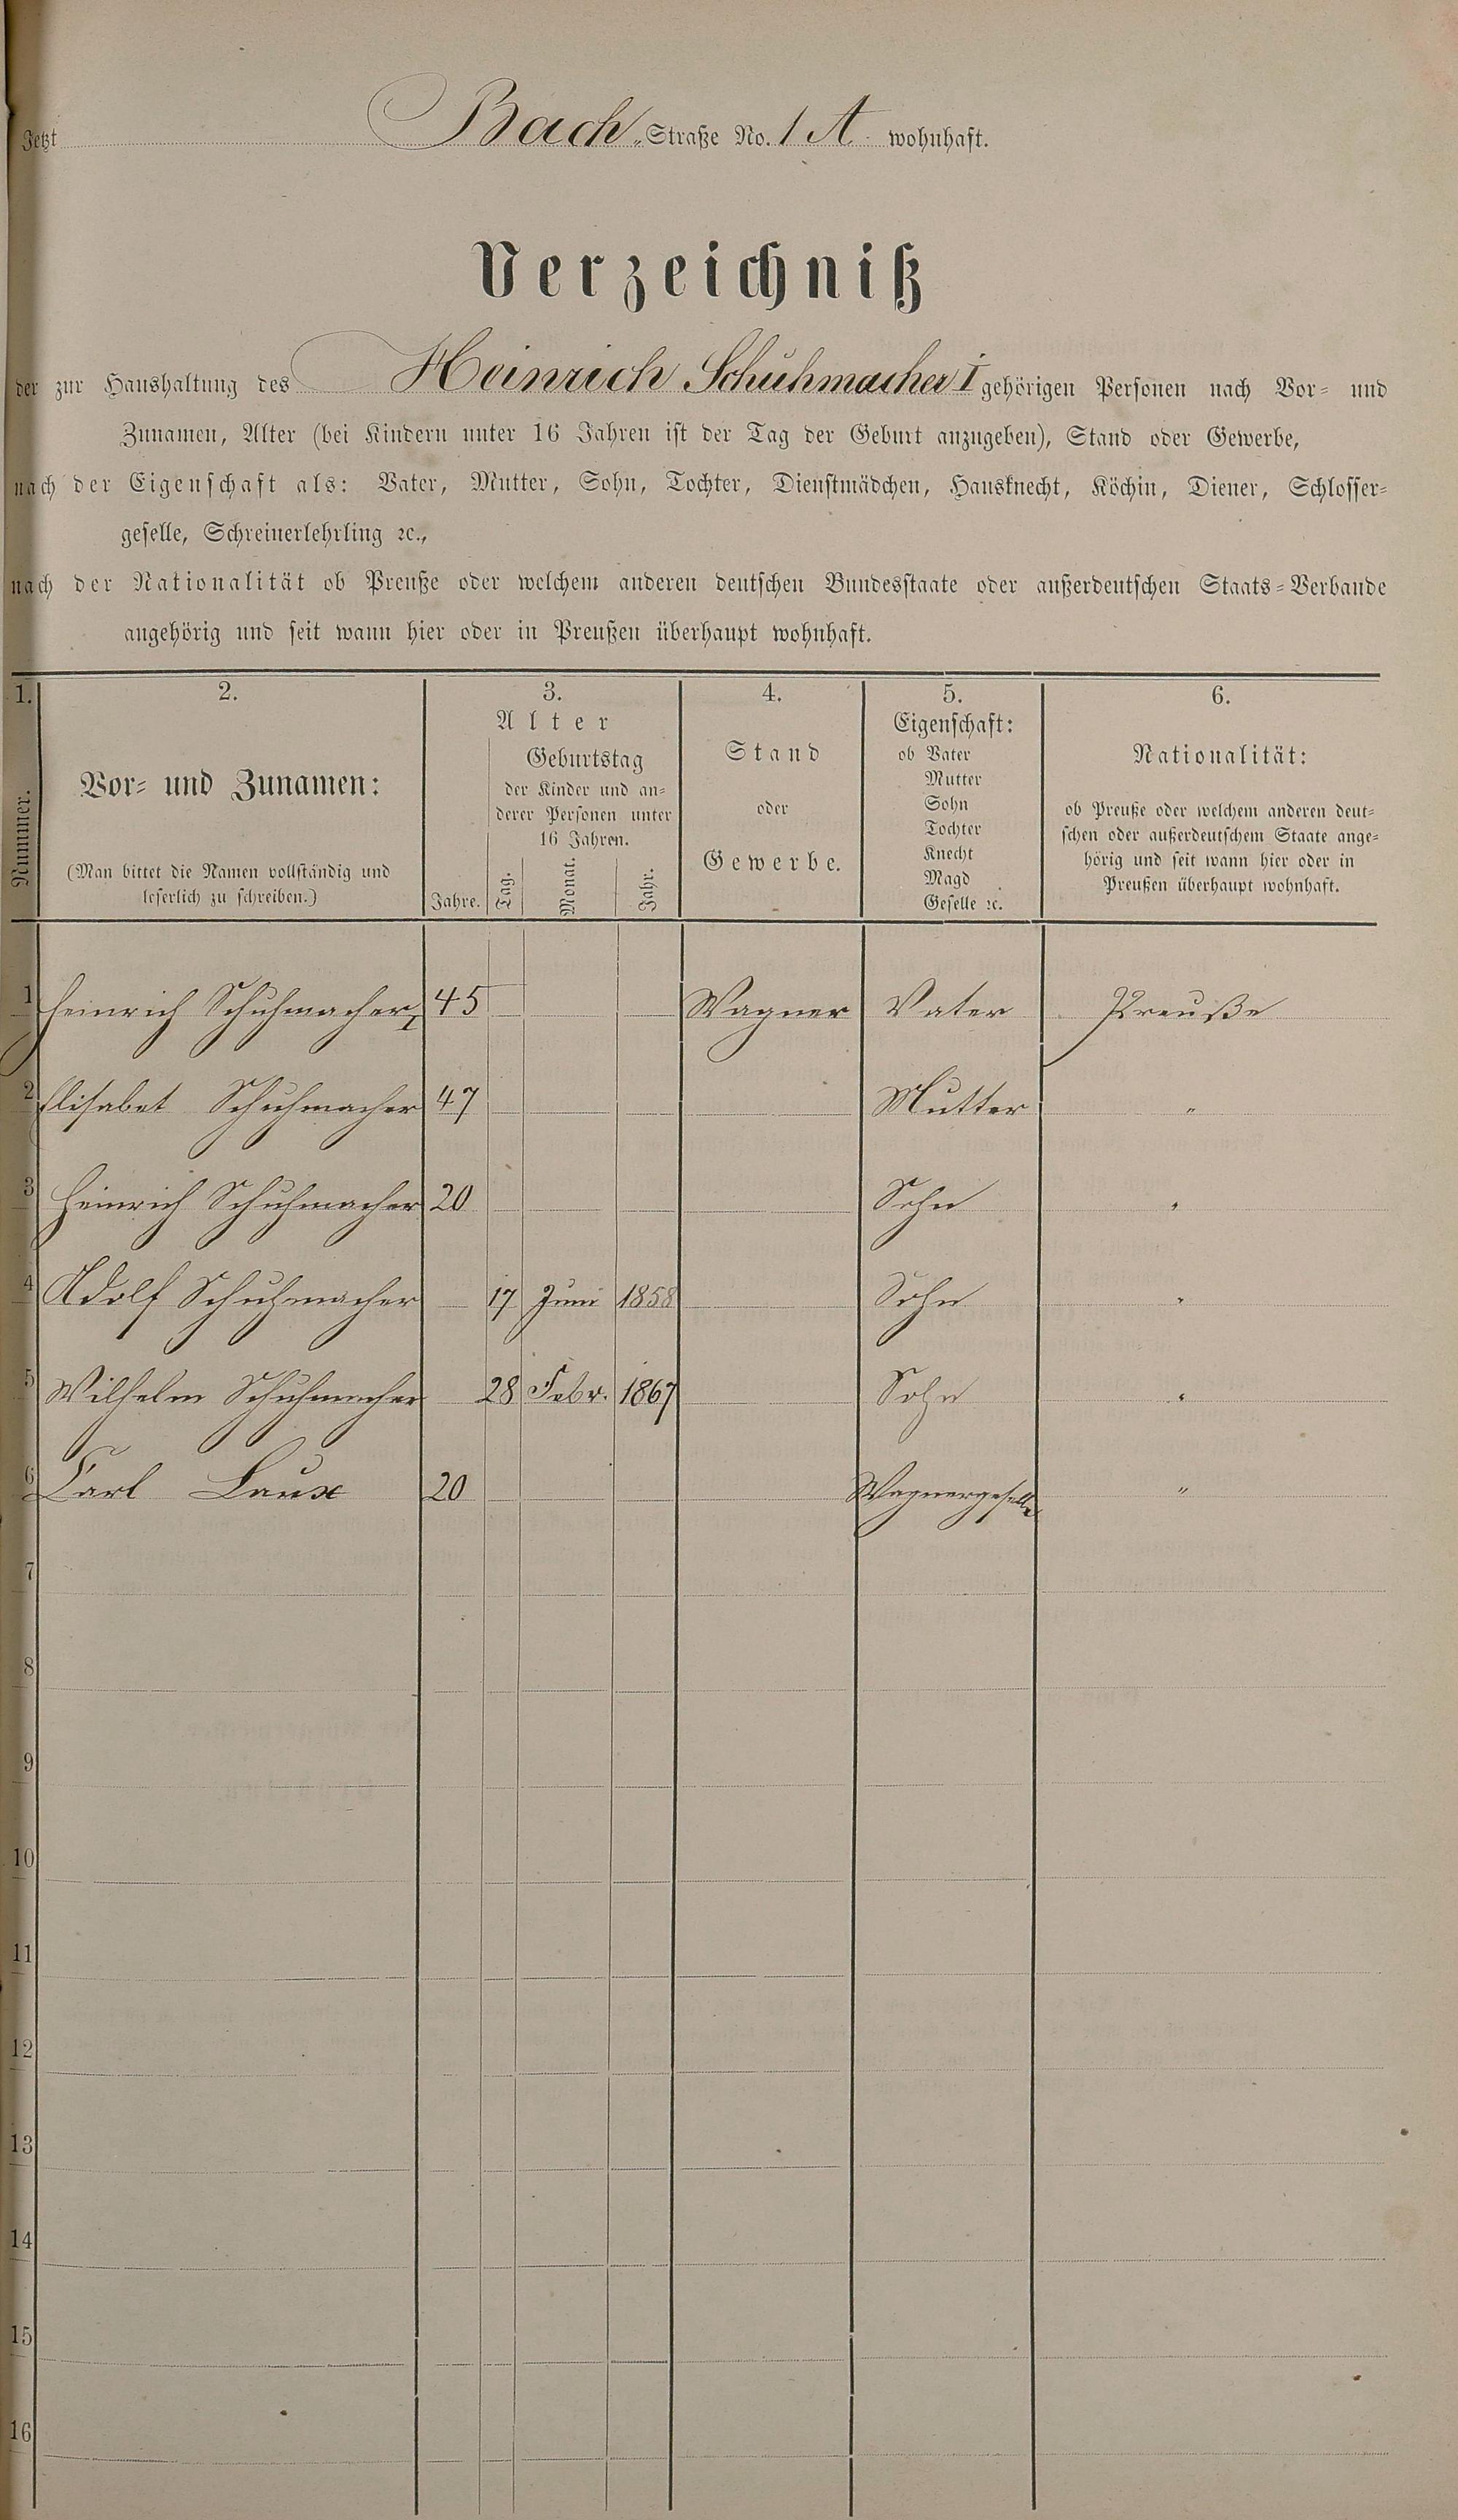 Jetzt Bach Straße No. 1 A wohnhaft.
Verzeichniß
der zur Haushaltung des Heinrich Schuhmacher I gehörigen Personen nach Vor- und
Zunamen, Alter (bei Kindern unter 16 Jahren ist der Tag der Geburt anzugeben), Stand oder Gewerbe,
nach der Eigenschaft als: Vater, Mutter, Sohn, Tochter, Dienstmädchen, Hausknecht, Köchin, Diener, Schlosser-
geselle, Schreinerlehrling ꝛc.,
nach der Nationalität ob Preuße oder welchem anderen deutschen Bundesstaate oder außerdeutschen Staats-Verbande
angehörig und seit wann hier oder in Preußen überhaupt wohnhaft.
1. 2. 3. 4. 5. 6.
Nummer.
Vor- und Zunamen:
(Man bittet die Namen vollständig und
leserlich zu schreiben.)
Alter
Jahre.
Geburtstag
der Kinder und an-
derer Personen unter
16 Jahren.
Tag. Monat. Jahr.
Stand
oder
Gewerbe.
Eigenschaft:
ob Vater
Mutter
Sohn
Tochter
Knecht
Magd
Geselle ꝛc.
Nationalität:
ob Preuße oder welchem anderen deut-
schen oder außerdeutschem Staate ange-
hörig und seit wann hier oder in
Preußen überhaupt wohnhaft.
1 Heinrich Schuhmacher I 45 Wagner Vater Preuße
2 Elisabet Schuhmacher 47 Mutter "
3 Heinrich Schuhmacher 20 Sohn "
4 Adolf Schuhmacher 17 Juni 1858 Sohn "
5 Wilhelm Schuhmacher 28 Febr. 1867 Sohn "
6 Carl Laux 20 Wagnergeselle "
7
8
9
10
11
12
13
14
15
16